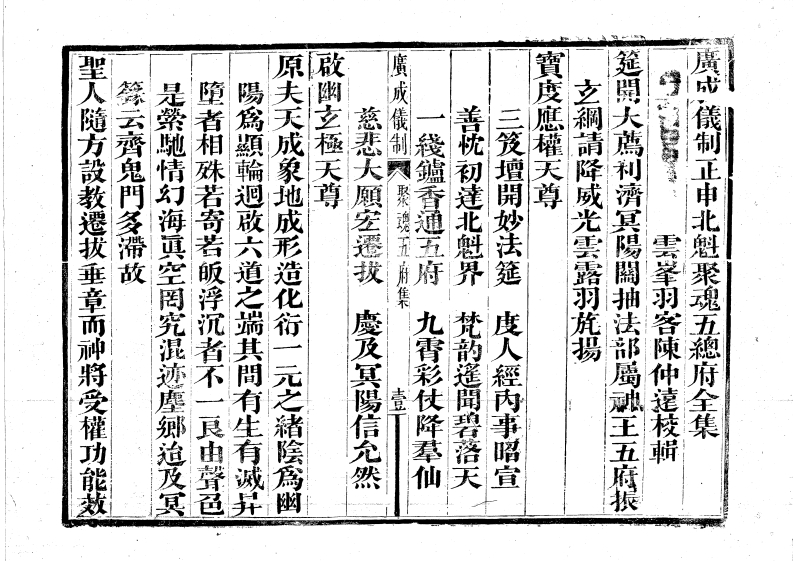 廣成儀制正申北魁聚魂五總府全集
雲峯羽客陳仲遠校輯
筵開大薦利濟冥陽闢抽法部屬神王五府振
玄綱請降威光雲露羽旄揚
寶度應權天尊
三笈壇開妙法筵 度人經內事昭宣
善忱初達北魁界 梵韵遙聞碧落天
一綫鑪香通五府 九霄彩仗降羣仙
廣成儀制 聚魂五府集 壹
慈悲大願宏遷拔 慶及冥陽信允然
啟幽玄極天尊
原夫天成象地成形造化衍一元之緒陰爲幽
陽爲顯輪迴啟六道之端其間有生有滅昇
墮者相殊若寄若皈浮沉者不一良由聲色
是縈馳情幻海眞空罔究混迹塵鄉迨及冥
籙云齊鬼門多滯故
聖人隨方設教遷拔垂章而神將受權功能效